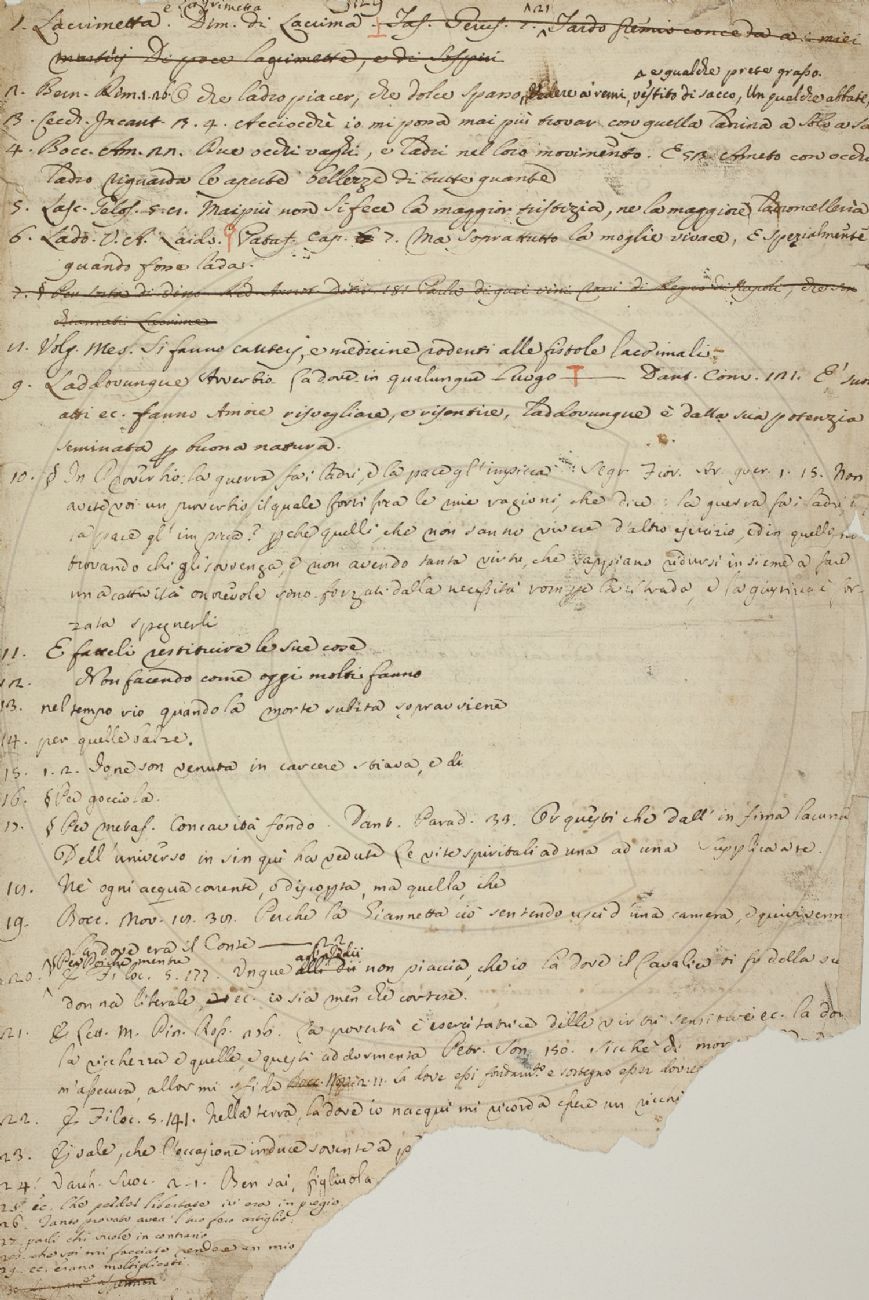 è Lagrimetta
1. Lacrimetta. Dim. di Lacrima. Tas. Gerus. Tardo premio conceda a i miei
martirj Di poce lagrimette, e di Sospiri
^ e qualche prete grasso.
2. Bern. Rim. 1. che ladro piacer, che dolce spasso, vedere a remi, vestito di sacco, Un qualche abbate,
3. Cecch. Incant. 3. 4. Acciocchè io mi possa mai più trovar con quella ladrina a solo a so
4. Bocc. Am. Due occhi vaghi, e ladri nel loro movimento. E Ameto con occhi
ladro riguarda le aperte bellezze di tutte quante
5. Lasc. Gelos. 5. Mai più non si fece la maggior tristizia, ne la maggiore ladroncelleria
6. Lado. V. A. Laido. Pataf. cap. 7. Ma soprattutto la moglie vivace, E spezialmente
quando fosse lada.
chiamati Lacrime
Volg. Mes. Si fanno cauterj, e medicine rodenti alle fistole lacrimali
9. Laddovunque Avverbio Là dove in qualunque Luogo Dant. Conv. E' suoi
atti ec. fanno Amore risvegliare, e risentire, laddovunque è dalla sua potenzia
seminata p buona natura.
10. § In Proverbio: la guerra fa i ladri, e la pace gl'impicca Segr. Fior. Art. guer. 1. 15. Non
avete voi un proverbio, il quale fortifica le mie ragioni, che dice: la guerra fa i ladri, e
la pace gl'impicca? pche quelli, che non sanno vivere d'altro esercizio, ed in quello no
trovando chi gli sovvenga, e non avendo tanta virtù, che sappiano ridursi insieme a fare
una cattività onorevole sono forzati dalla necessità rompe la strada, e la giustizia è for-
zata spegnerli
11. E fatteli restituire le sue cose
12. Non facendo come oggi molti fanno
13. nel tempo rio quando la morte subita sopravviene
14. per quelle salse.
15. 1. 2. Done son venuta in carcere schiava, e di
16. § Per gocciola.
17. § Per metaf. Concavità fondo. Dant. Parad. 33. Or questi che dall'infima lacuna
Dell'universo in sin qui ha vedute Le vite spiritali ad una ad una Supplica a te.
Nè ogni acqua corrente, o discoperta, ma quella, che
19. Bocc. Nov. Perche la Giannetta ciò sentendo uscì d'una camera, e quivi venne
là dove era il Conte
§ Per Poichè, mentre
20. E Filoc. 5. 177. Unque agl'Iddii non piaccia, che io là dove il Cavaliere di fu della su
donna liberale, ec. io sia men che cortese.
21. E Lett. M. Pin. Ros. La povertà è esercitatrice delle virtù sensitive ec. là dov
la ricchezza e quelle, e questi addormenta Petr. Son. 150. Sicchè di mor
m'assecura, allor mi là dove essi fondamto e sostegno esser dovre
22. E Filoc. 5. 141. Nella terra, là dove io nacqui mi ricorda essere un vicin
23. E vale, che l'occasione induce sovente a p
24. Varch. Suoc. 2. 1. Ben sai, figliuola
25. ec. Che perdei libertate ivi era in pregio
26. Tanto provato avea 'l tuo fero artiglio
27. parli chi vuole in contrario
che voi mi facciate rendere un mio
29. ec. erano moltiplicati.